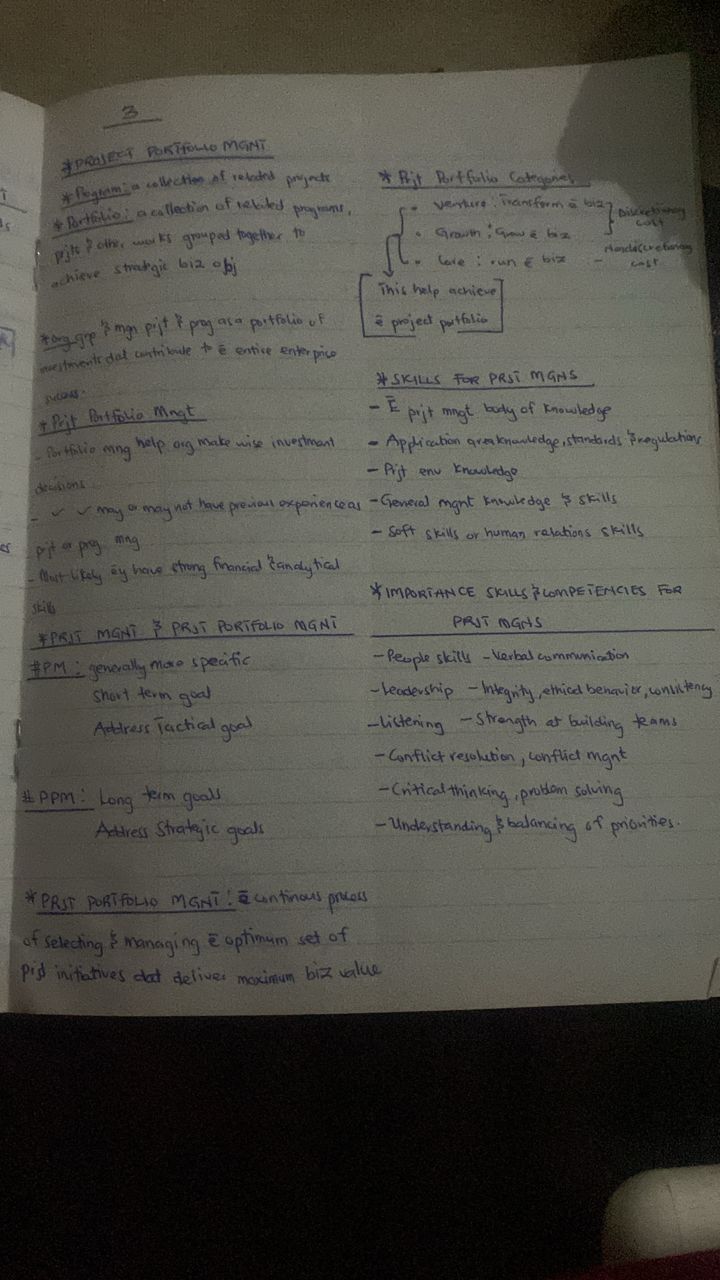 3
*PROJECT PORTFOLIO MGNT
*Program: a collection of related projects
*Portfolio: a collection of related programs,
pjts & other works grouped together to
achieve strategic biz obj
*org grp & mgn pijt & prog as a portfolio of
investments dat contribute to ē entire enterprice
success.
*Prjt Portfolio Mngt
- Portfolio mng help org make wise investment
decisions
- ✓ ✓ may or may not have previous experience as
prjt or prog mng
- Most likely ēy have strong financial & analytical
skills
*PRJT MGNT & PRJT PORTFOLIO MGNT
#PM: generally more specific
Short term goal
Address Tactical goal
#PPM: Long term goals
Address Strategic goals
*PRJT PORTFOLIO MGNT: ē continous process
of selecting & managing ē optimum set of
prjt initiatives dat deliver maximum biz value
*Prjt Portfolio Categories
• Venture: Transform ē biz
Discretionary
cost
• Growth: Grow ē biz
• Core: run ē biz - Nondiscretionary
cost
This help achieve
ē project portfolio
*SKILLS FOR PRJT MGNS
- Ē prjt mngt body of knowledge
- Application area knowledge, standards & regulations
- Pjt env knowledge
- General mgnt knowledge & skills
- Soft skills or human relations skills
*IMPORTANCE SKILLS & COMPETENCIES FOR
PRJT MGNS
- People skills - Verbal communication
- Leadership - Integrity, ethical behavior, consistency
- Listening - Strength at building teams
- Conflict resolution, conflict mgnt
- Critical thinking, problem solving
- Understanding & balancing of priorities.